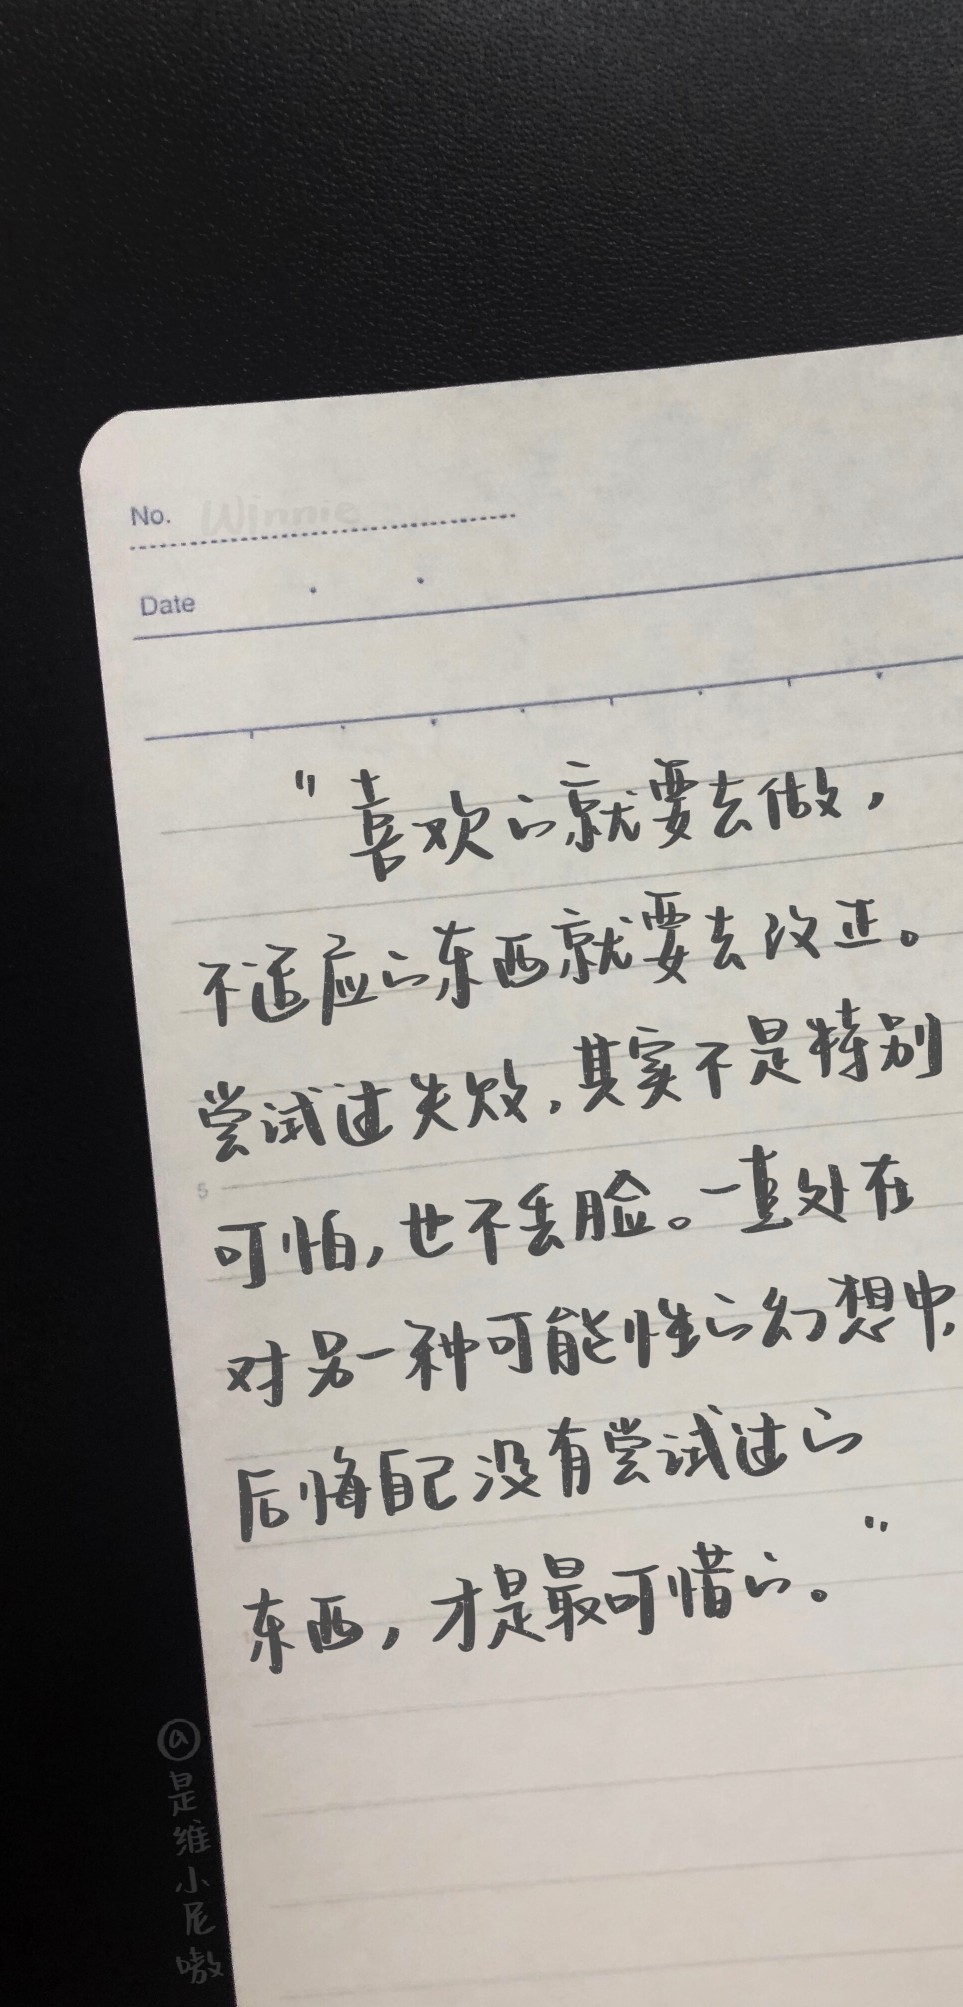 No. Winnie
Date
"喜欢的就要去做，
不适应的东西就要去改正。
尝试过失败，其实不是特别
可怕，也不丢脸。一直处在
5
对另一种可能性的幻想中，
后悔自己没有尝试过的
东西，才是最可惜的。"
@是维小尼嗷